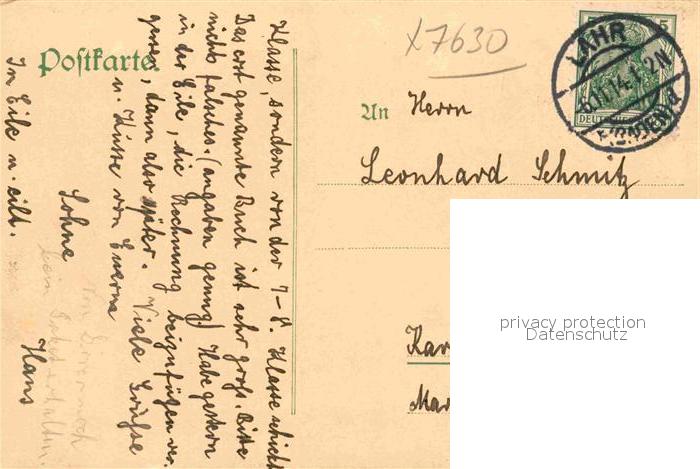 Postkarte.
X7630
LAHR
6.11.14.1-2N
DEUTSCHES
An Herrn
Leonhard Schmitz
privacy protection
Datenschutz
Klasse, sondern von der 7-8. Klasse schickt
Das erst genannte Buch ist sehr groß. Bitte
nichts falsches. (angaben genug) Habe gestern
in der Eile, die Rechnung beizufügen ver-
gessen, dann also später. Viele Grüsse
u. Küsse von Euerm
Sohne
Hans
Im Eile u. eilt.